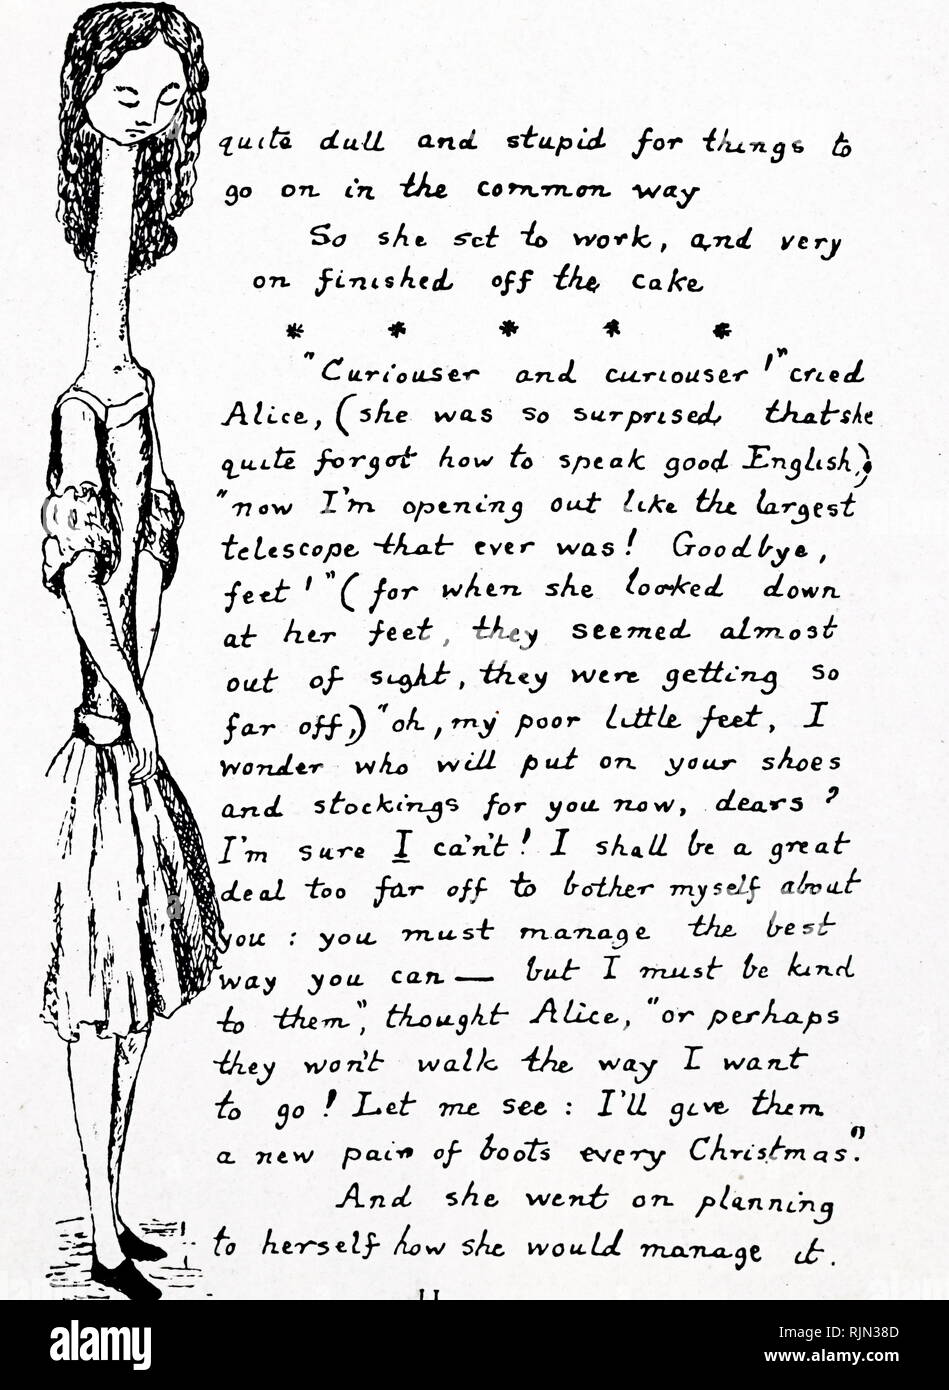 quite dull and stupid for things to
go on in the common way
So she set to work, and very
on finished off the cake
* * * * *
"Curiouser and curiouser!" cried
Alice, (she was so surprised that she
quite forgot how to speak good English,)
"now I'm opening out like the largest
telescope that ever was! Goodbye,
feet!" (for when she looked down
at her feet, they seemed almost
out of sight, they were getting so
far off,) "oh, my poor little feet, I
wonder who will put on your shoes
and stockings for you now, dears?
I'm sure I ca'n't! I shall be a great
deal too far off to bother myself about
you: you must manage the best
way you can — but I must be kind
to them", thought Alice, "or perhaps
they won't walk the way I want
to go! Let me see: I'll give them
a new pair of boots every Christmas."
And she went on planning
to herself how she would manage it.
11
alamy
Image ID: RJN38D
www.alamy.com